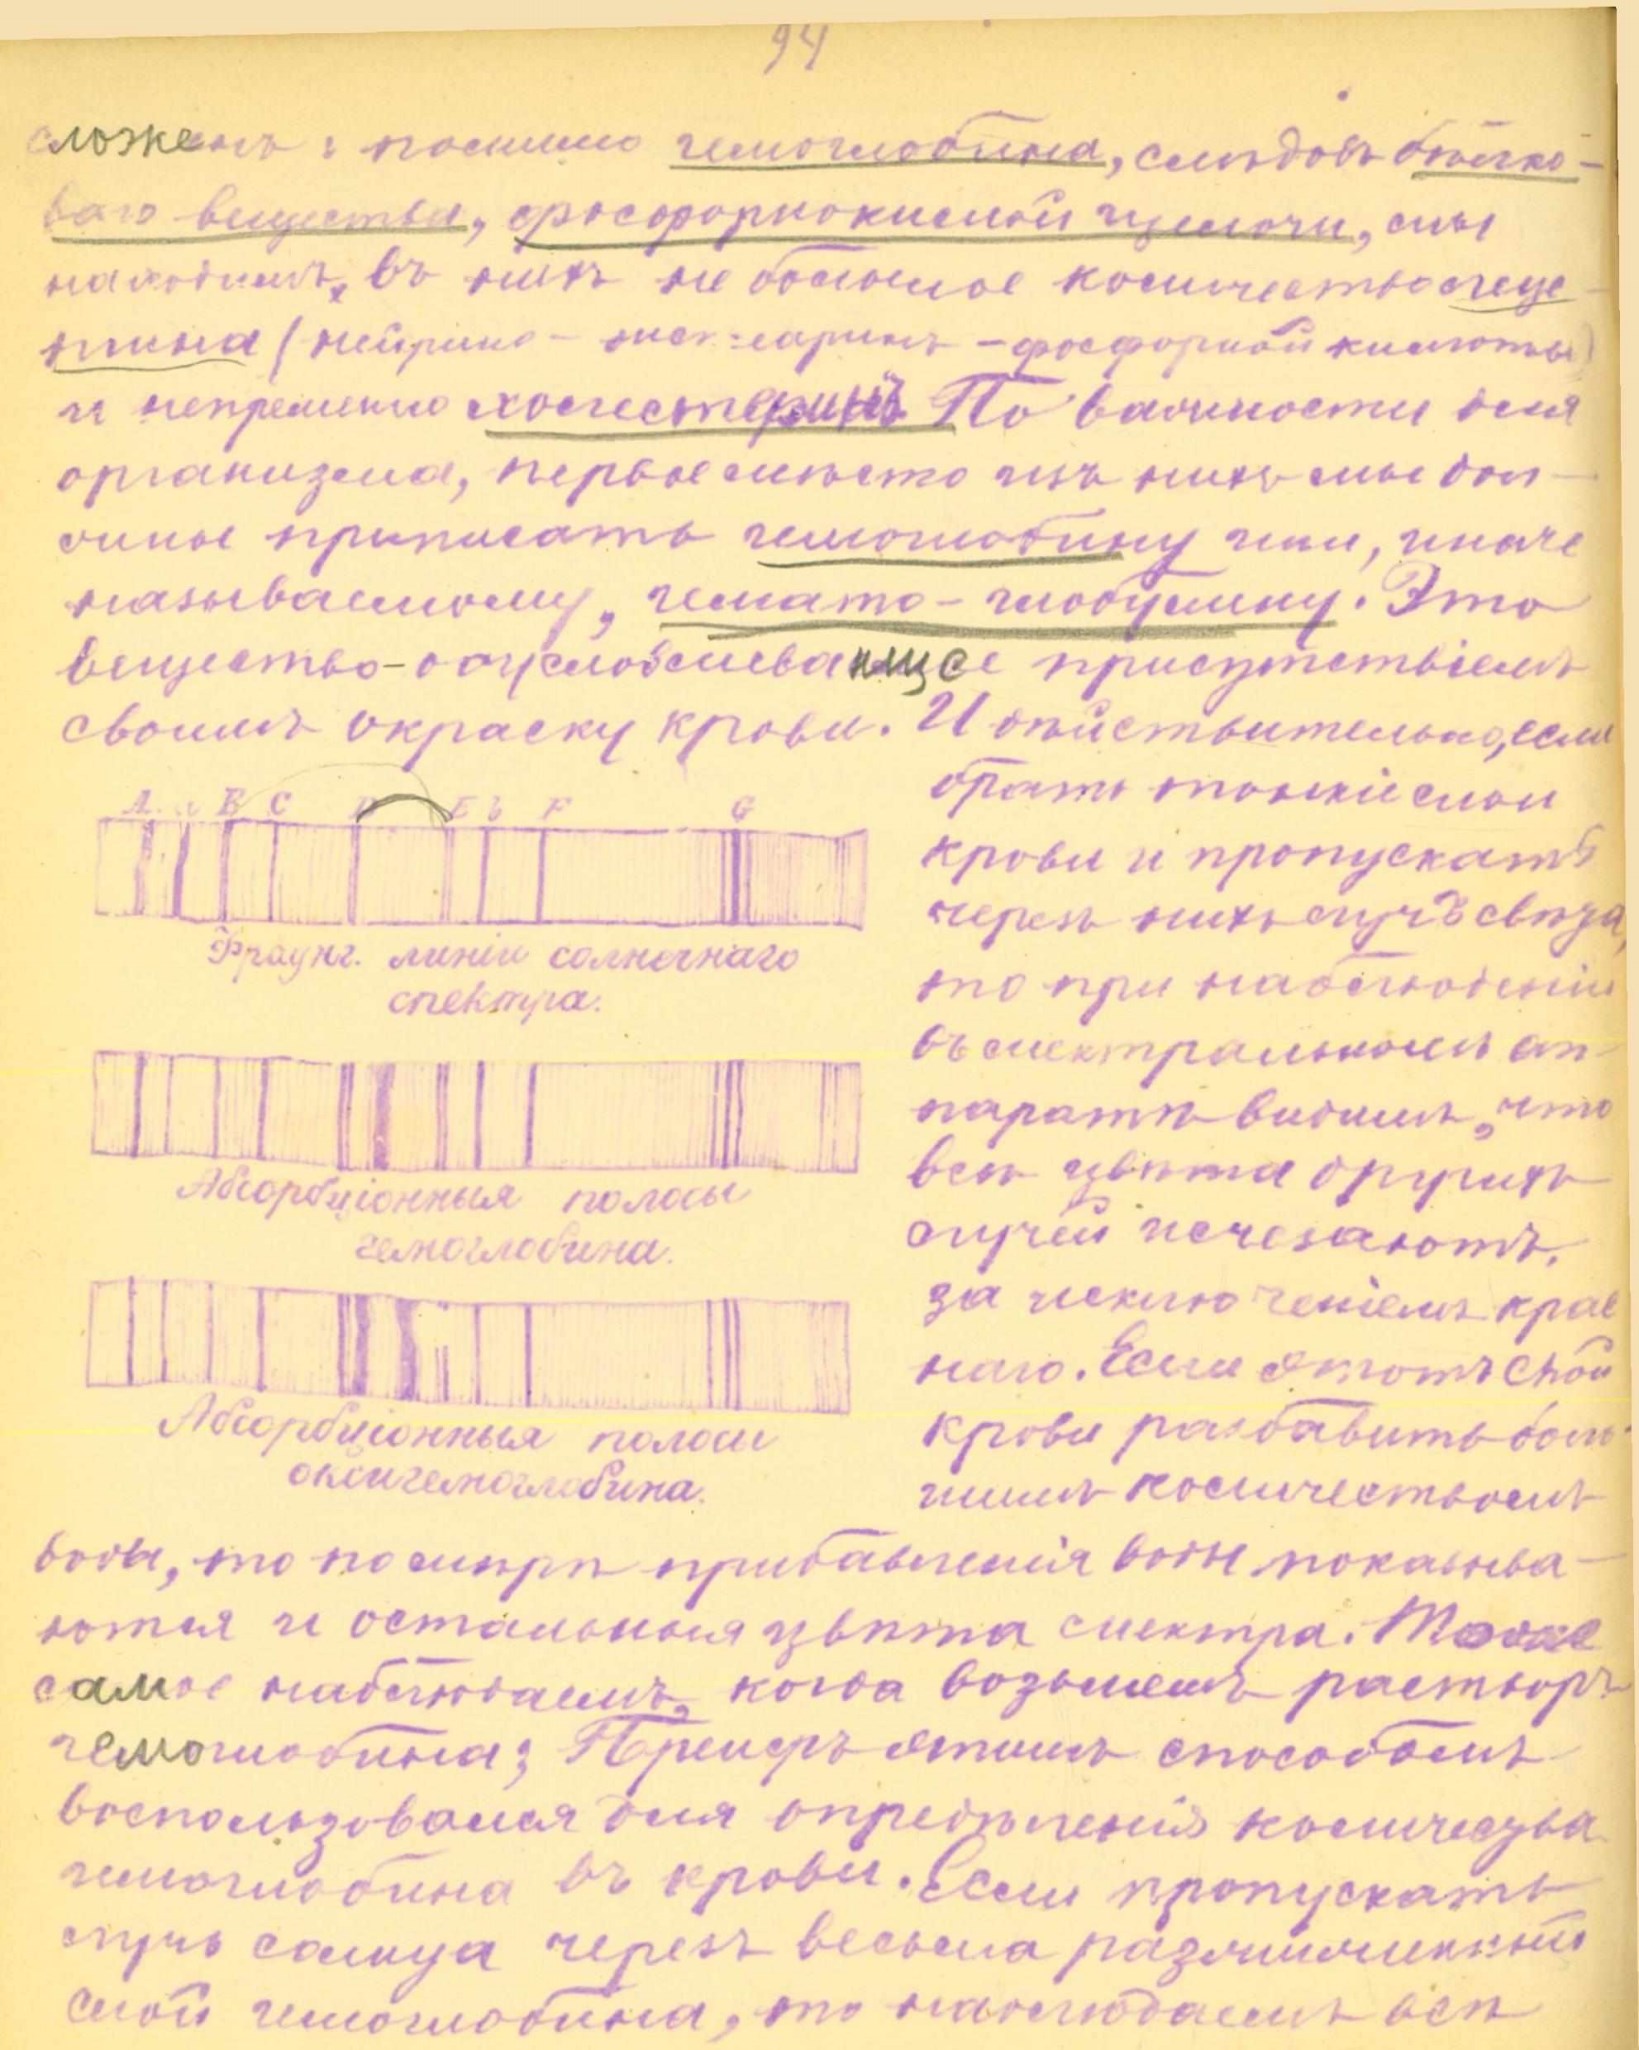 94
сложенъ: помимо гемоглобина, слѣдовъ бѣлко-
ваго вещества, фосфорнокислой щелочи, мы
находимъ, въ нихъ не большое количество леце-
тина (нейрино - - фосфорной кислоты)
и непремѣнно холестеринъ. По важности для
организма, первое мѣсто изъ нихъ мы дол-
жны приписать гемоглобину или, иначе
называемому, гемато-глобулину. Это
вещество-обусловливающее присутствіемъ
своимъ окраску крови. И дѣйствительно, если
A a B C D E b F G
Фраунг. линіи солнечнаго
спектра.
Абсорбціонныя полосы
гемоглобина.
Абсорбціонныя полосы
оксигемоглобина.
брать тонкіе слои
крови и пропускать
черезъ нихъ лучъ свѣта,
то при наблюденіи
въ спектральномъ ап-
паратѣ видимъ, что
всѣ цвѣта другихъ
лучей исчезаютъ,
за исключеніемъ крас
наго. Если этотъ слой
крови разбавить боль-
шимъ количествомъ
воды, то по мѣрѣ прибавленія воды показыва-
ются и остальныя цвѣта спектра. Тоже
самое наблюдаемъ, когда возьмемъ растворъ
гемоглобина; Прейеръ этимъ способомъ
воспользовался для опредѣленія количества
гемоглобина въ крови. Если пропускать
лучъ солнца черезъ весьма разжиженный
слой гемоглобина, то наблюдаемъ всѣ